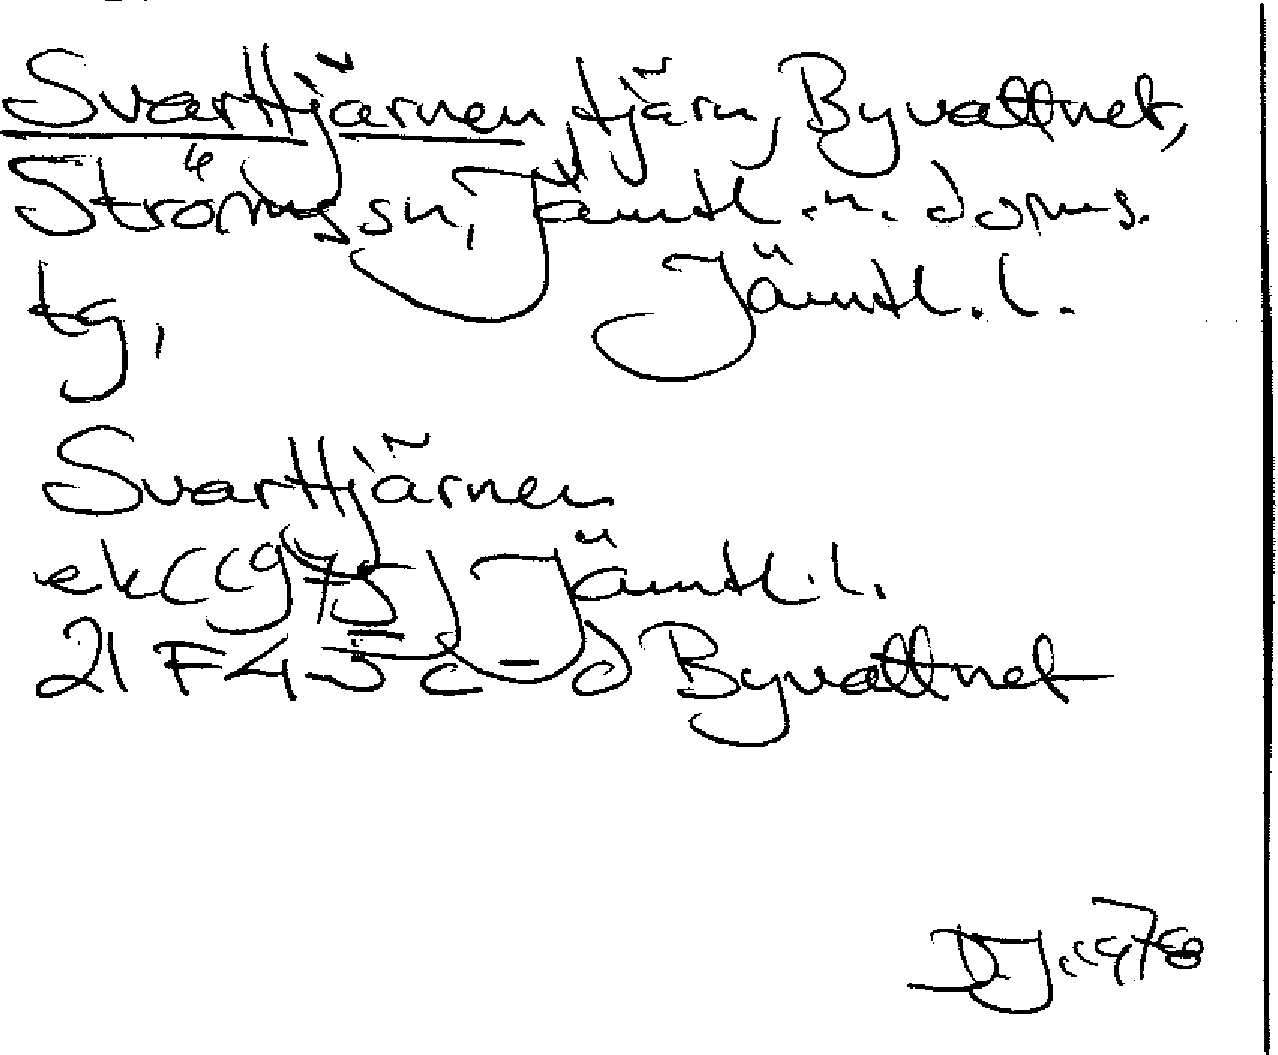 Svarttjärnen, tjärn, Byvattnet,
Ströms sn, Jämtl. n. doms.
tg, Jämtl. l.
Svarttjärnen
ek (1975) Jämtl. l.
21 F 4-5 c-d Byvattnet
DJ. 1978